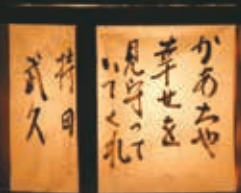 かあちゃ
幸せを
見守って
いてくれ
持田
武久